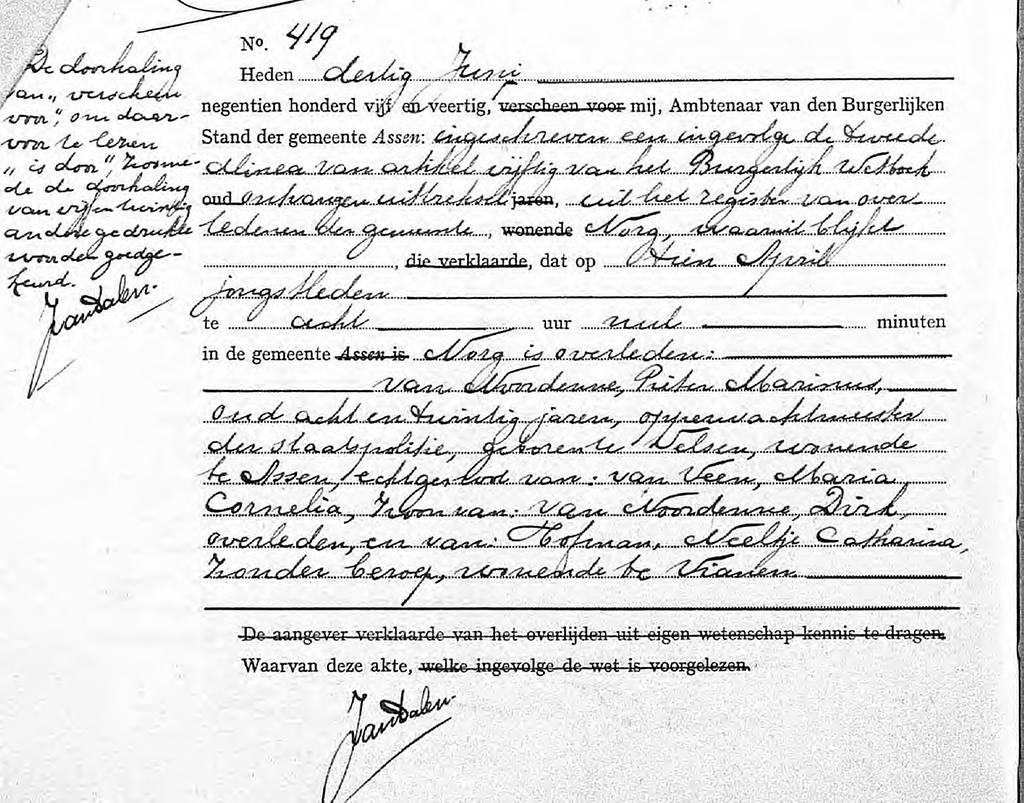 No. 419
Heden dertig Juni
negentien honderd vijf en veertig, verscheen voor mij, Ambtenaar van den Burgerlijken
Stand der gemeente Assen: ingeschreven een ingevolge de tweede
alinea van artikel vijftig van het Burgerlijk Wetboek
oud ontvangen uittreksel jaren, uit het register van over
ledenen der gemeente, wonende Norg, waaruit blijkt
, die verklaarde, dat op tien April
jongstleden
te acht uur nul minuten
in de gemeente Assen is Norg is overleden:
van Noordenne, Pieter Marinus,
oud acht en twintig jaren, opperwachtmeester
der staatspolitie, geboren te Velsen, wonende
te Assen, echtgenoot van: van Veen, Maria
Cornelia, zoon van: van Noordenne, Dirk,
overleden, en van: Hofman, Neeltje Catharina,
zonder beroep, wonende te Vianen
De aangever verklaarde van het overlijden uit eigen wetenschap kennis te dragen.
Waarvan deze akte, welke ingevolge de wet is voorgelezen.
JanDalen.
De doorhaling
van „verscheen
voor", om daar-
voor te lezen
„is door", zoome-
de de doorhaling
van vijf en twintig
andere gedrukte
woorden goedge-
keurd.
JanDalen.